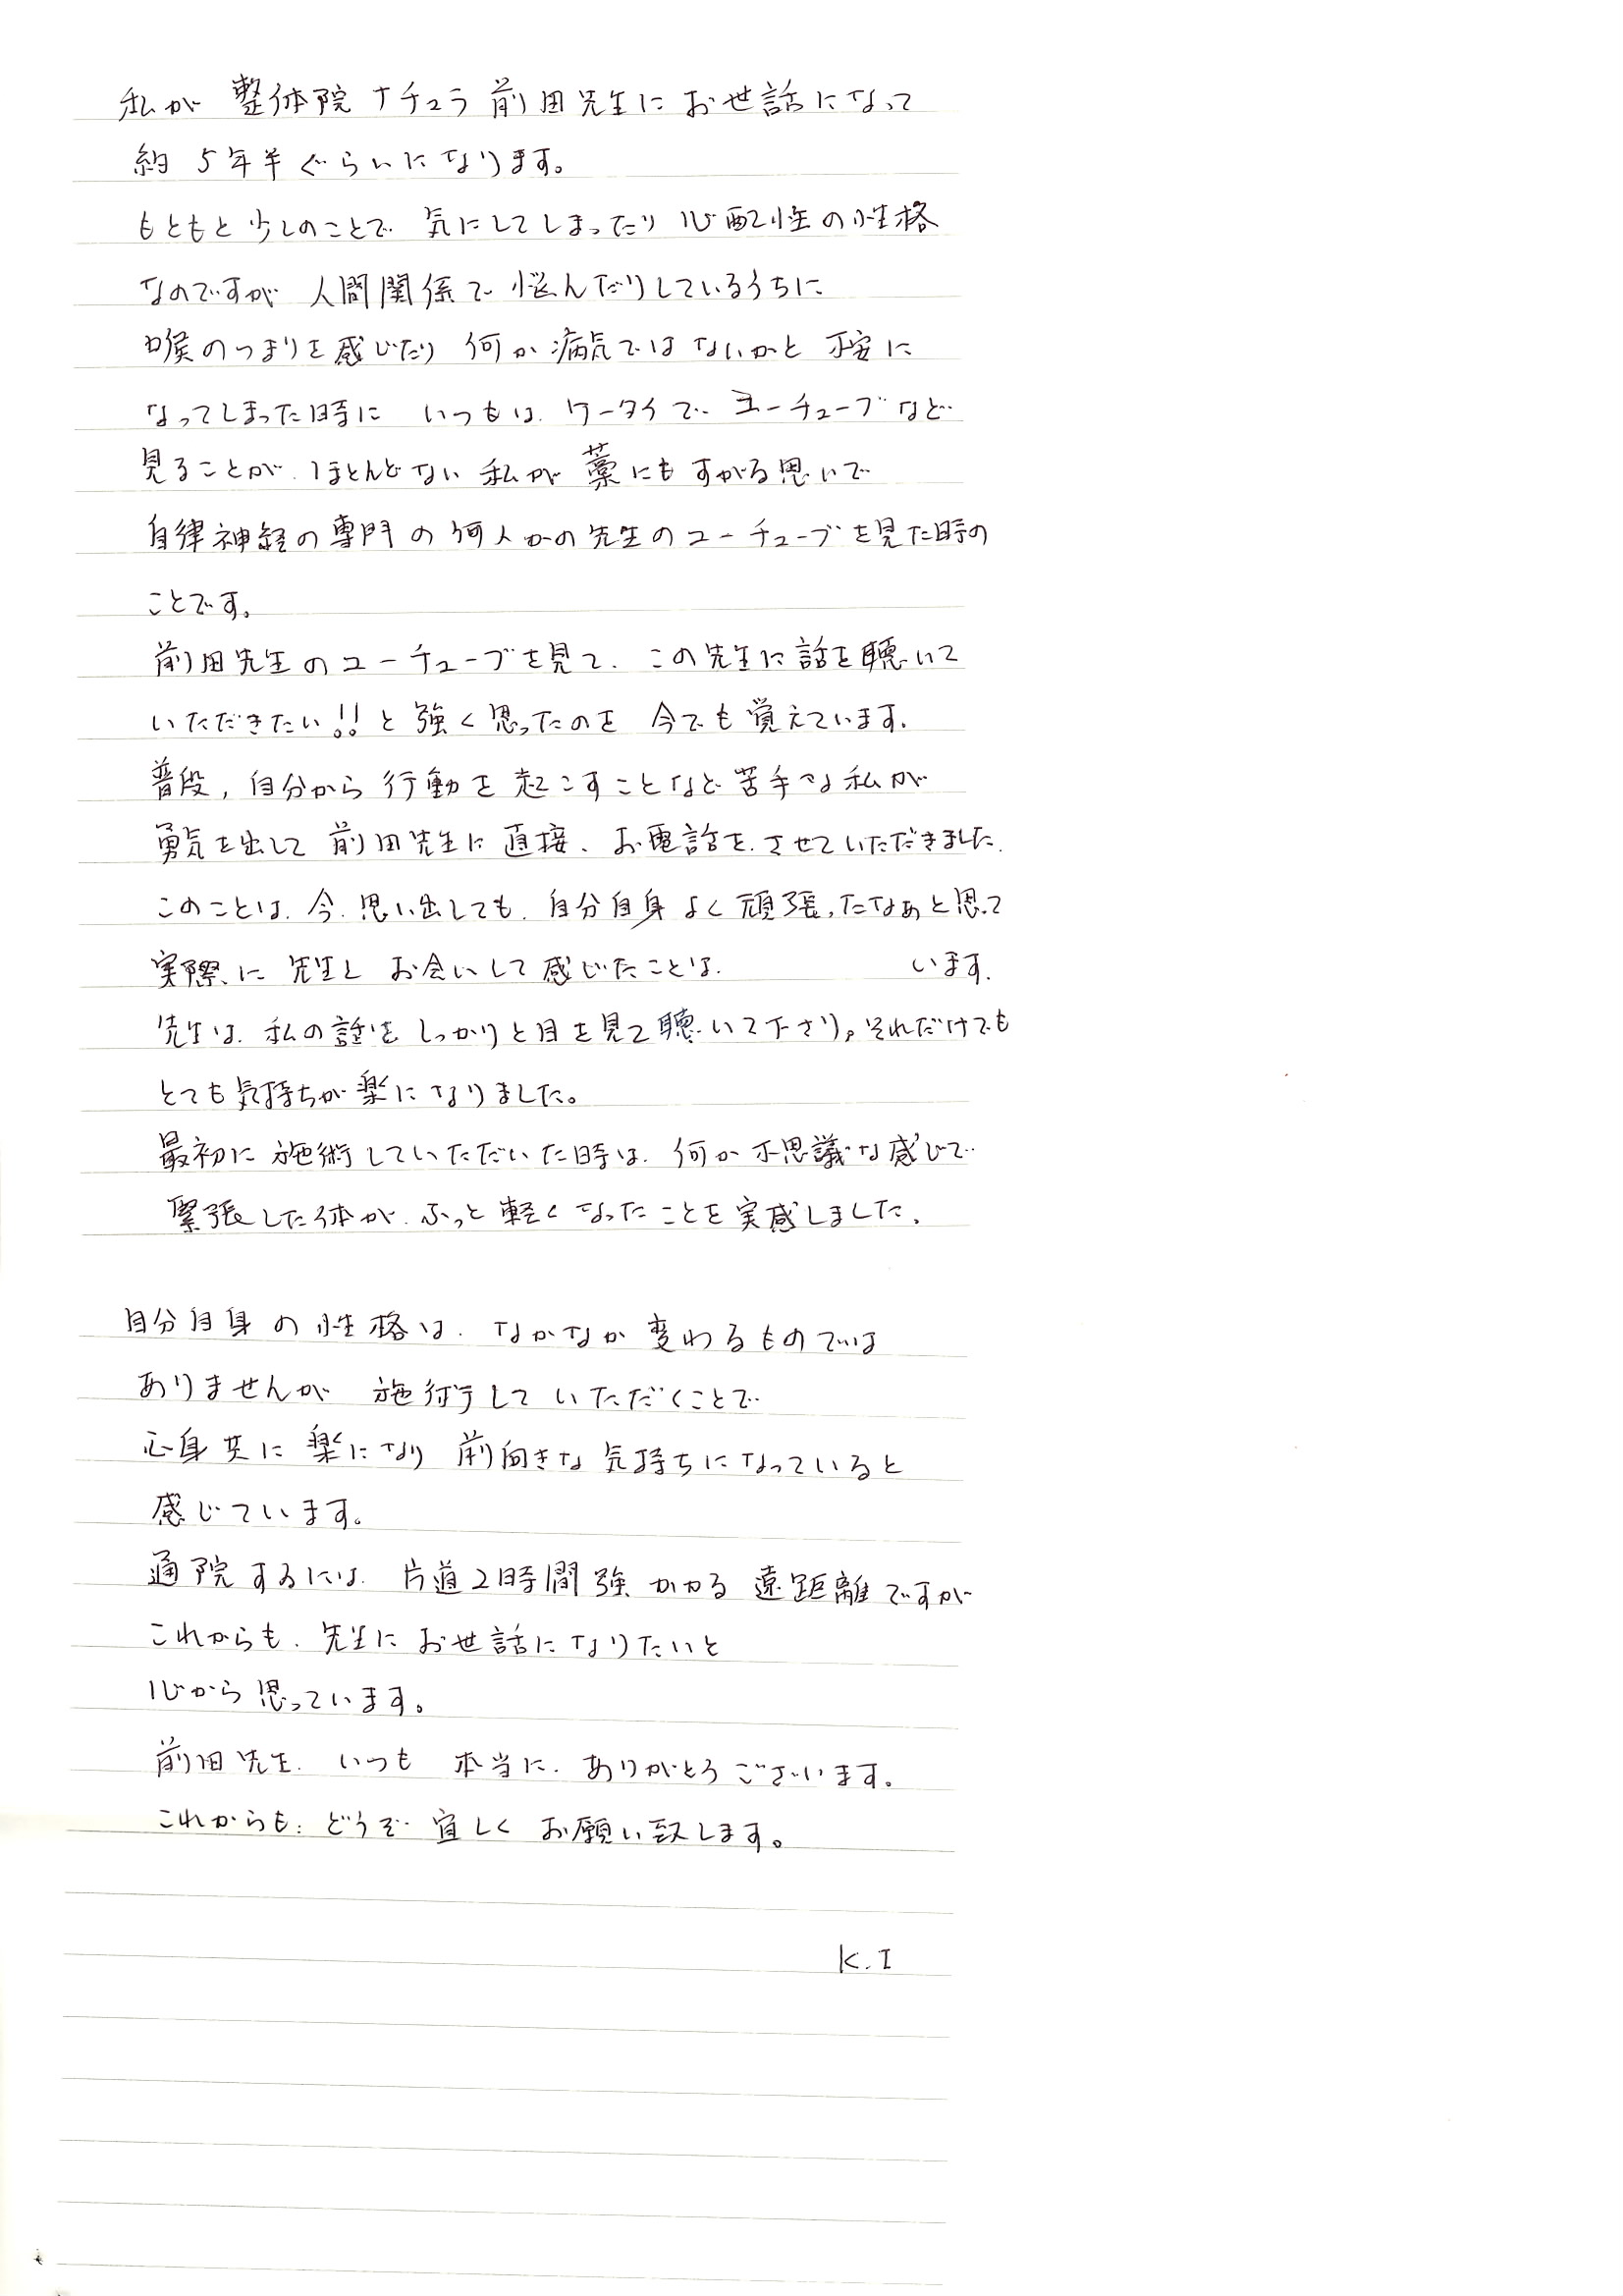 私が 整体院 ナチュラ 前田先生に お世話になって
約 5年半 ぐらいになります。
もともと 少しのことで 気にしてしまったり 心配性の性格
なのですが 人間関係で 悩んだりしているうちに
喉のつまりを感じたり 何か病気ではないかと 不安に
なってしまった時に いつもは、ケータイで ユーチューブなど
見ることが、ほとんどない 私が 藁にもすがる思いで
自律神経の専門の何人かの先生のユーチューブを見た時の
ことです。
前田先生のユーチューブを見て、この先生に話を聴いて
いただきたい!!と 強く思ったのを 今でも覚えています。
普段, 自分から 行動を 起こすことなど 苦手な私が
勇気を出して 前田先生に 直接、お電話を、させていただきました。
このことは、今、思い出しても、自分自身 よく 頑張ったなぁと思って
います。
実際、に 先生と お会いして 感じたことは、
先生は、私の話を しっかりと目を見て聴いて下さり。それだけでも
とても気持ちが楽になりました。
最初に 施術していただいた時は、何か 不思議な感じで
緊張した体が、ふっと 軽くなったことを実感しました。
自分自身の性格は、なかなか 変わるものでは
ありませんが 施術していただくことで
心身共に 楽になり 前向きな気持ちになっていると
感じています。
通院するには、片道2時間強かかる 遠距離ですが
これからも、先生に お世話になりたいと
心から思っています。
前田先生、いつも 本当に、ありがとうございます。
これからも、どうぞ 宜しく お願い致します。
K.I